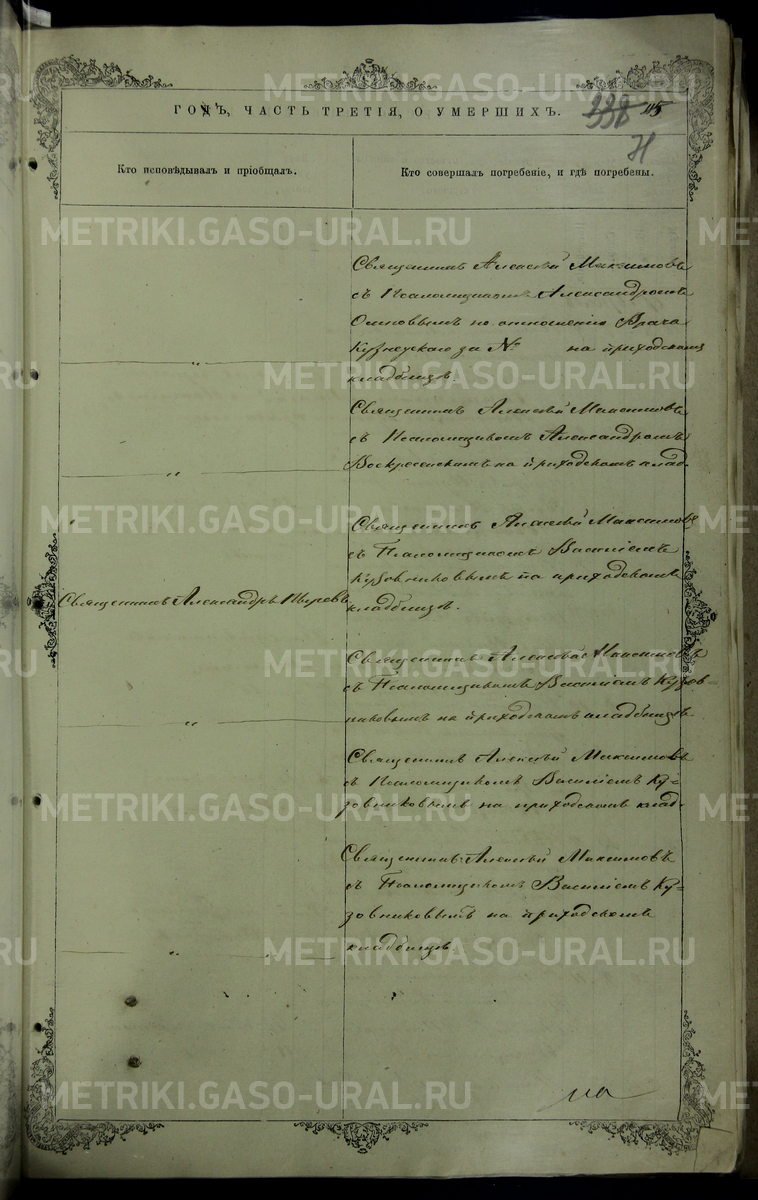 ГОДЪ, ЧАСТЬ ТРЕТІЯ, О УМЕРШИХЪ.
115
Кто исповѣдывалъ и пріобщалъ.
Кто совершалъ погребеніе, и гдѣ погребены.
Священникъ Алексѣй Максимовъ
съ Псаломщикомъ Александромъ
по отношенію Врача
Кузнецкаго за № на приходскомъ
„
кладбищѣ.
Священникъ Алексѣй Максимовъ
съ Псаломщикомъ Александромъ
Воскресенскимъ на приходскомъ клад.
„
Священникъ Алексѣй Максимовъ
съ Псаломщикомъ Василіемъ
Кузовниковымъ на приходскомъ
Священникъ Александръ
кладбищѣ.
Священникъ Алексѣй Максимовъ
съ Псаломщикомъ Василіемъ Кузов-
никовымъ на приходскомъ кладбищѣ
„
Священникъ Алексѣй Максимовъ
съ Псаломщикомъ Василіемъ Ку-
зовниковымъ на приходскомъ клад.
Священникъ Алексѣй Максимовъ
съ Псаломщикомъ Василіемъ Ку-
зовниковымъ на приходскомъ
кладбищѣ.
„
METRIKI.GASO-URAL.RU